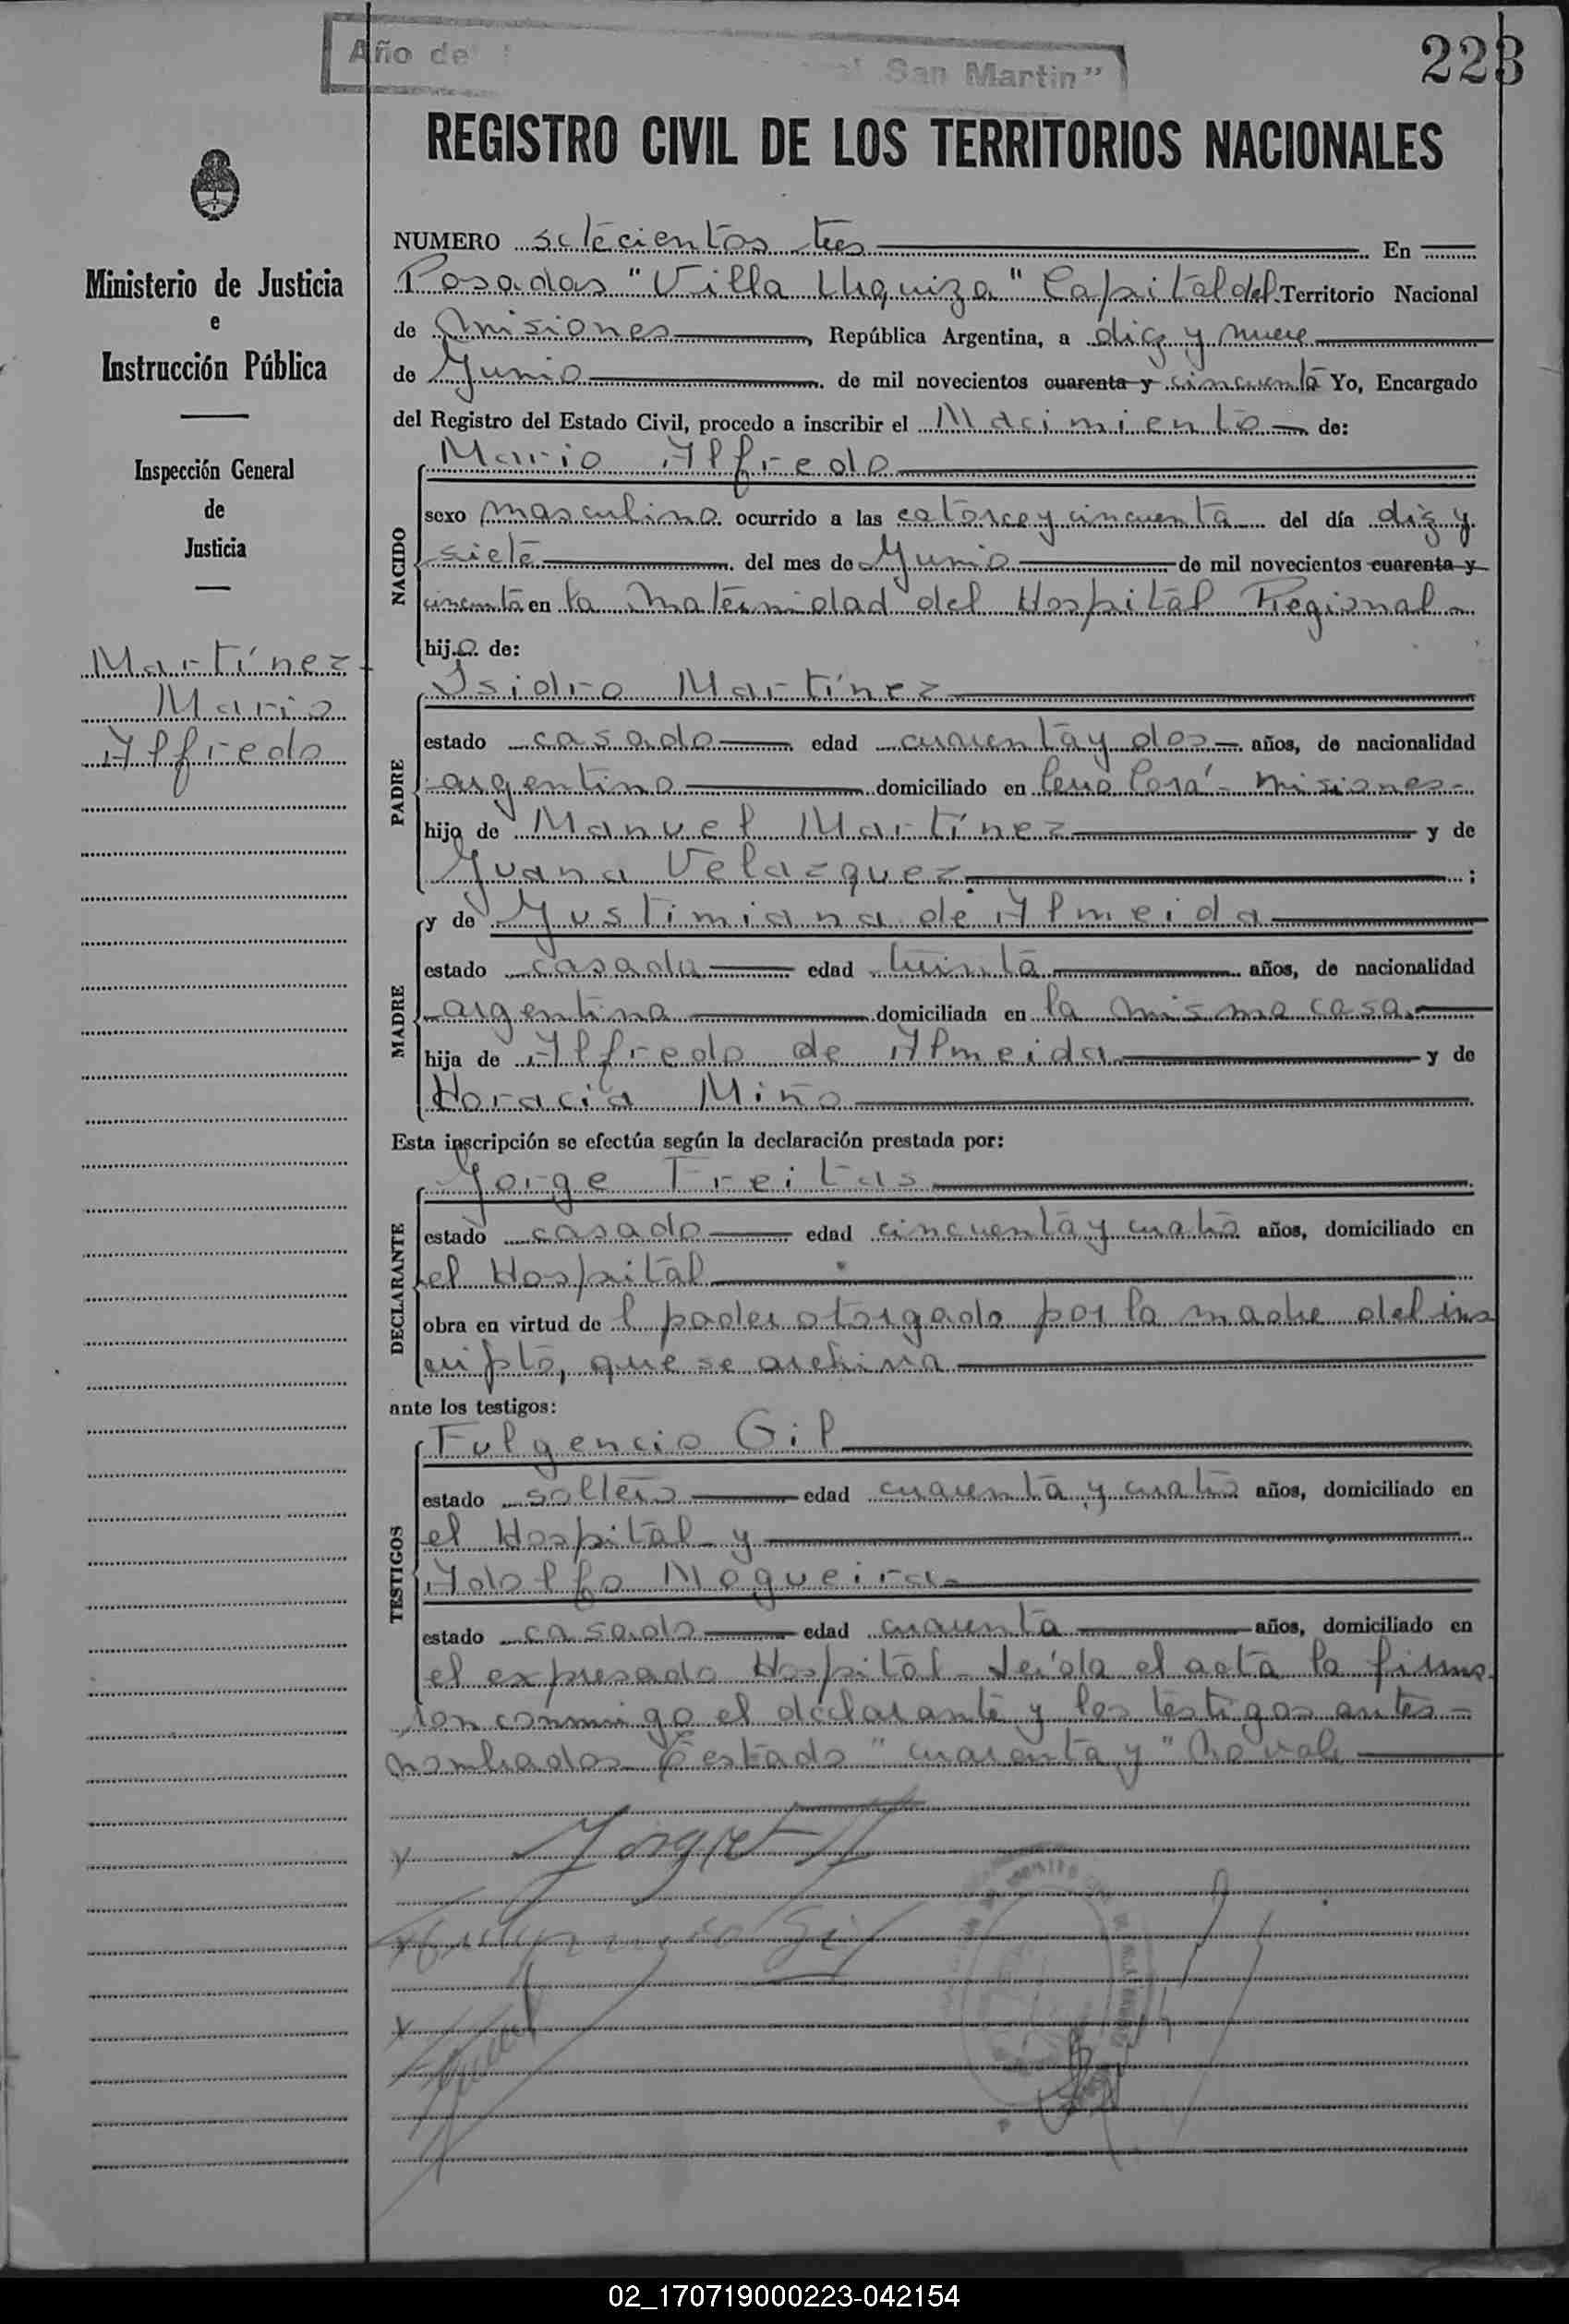 Año de San Martín"
223
REGISTRO CIVIL DE LOS TERRITORIOS NACIONALES
Ministerio de Justicia
e
Instrucción Pública
Inspección General
de
Justicia
Martínez
Mario
Alfredo
NUMERO setecientos tres En
Posadas "Villa Urquiza" Capital del Territorio Nacional
de Misiones, República Argentina, a diez y nueve
de Junio de mil novecientos cuarenta y cincuenta Yo, Encargado
del Registro del Estado Civil, procedo a inscribir el Nacimiento de:
NACIDO
Mario Alfredo
sexo masculino ocurrido a las catorce y cincuenta del día diez y
siete del mes de Junio de mil novecientos cuarenta y
cincuenta en la Maternidad del Hospital Regional
hijo de:
PADRE
Isidro Martínez
estado casado edad cuarenta y dos años, de nacionalidad
argentino domiciliado en Cerro Corá - Misiones-
hijo de Manuel Martínez y de
Juana Velazquez;
MADRE
y de Justimiana de Almeida
estado casada edad treinta años, de nacionalidad
argentina domiciliada en la misma casa.
hija de Alfredo de Almeida y de
Horacia Miño
Esta inscripción se efectúa según la declaración prestada por:
DECLARANTE
Jorge Freitas
estado casado edad cincuenta y cuatro años, domiciliado en
el Hospital
obra en virtud de l poder otorgado por la madre del ins
cripto, que se archiva
ante los testigos:
TESTIGOS
Fulgencio Gil
estado soltero edad cuarenta y cuatro años, domiciliado en
el Hospital y
Adolfo Nogueira
estado casado edad cuarenta años, domiciliado en
el expresado Hospital - Leída el acta la firma
ron conmigo el declarante y los testigos antes -
nombrados - Testado "cuarenta y" No vale
02_170719000223-042154